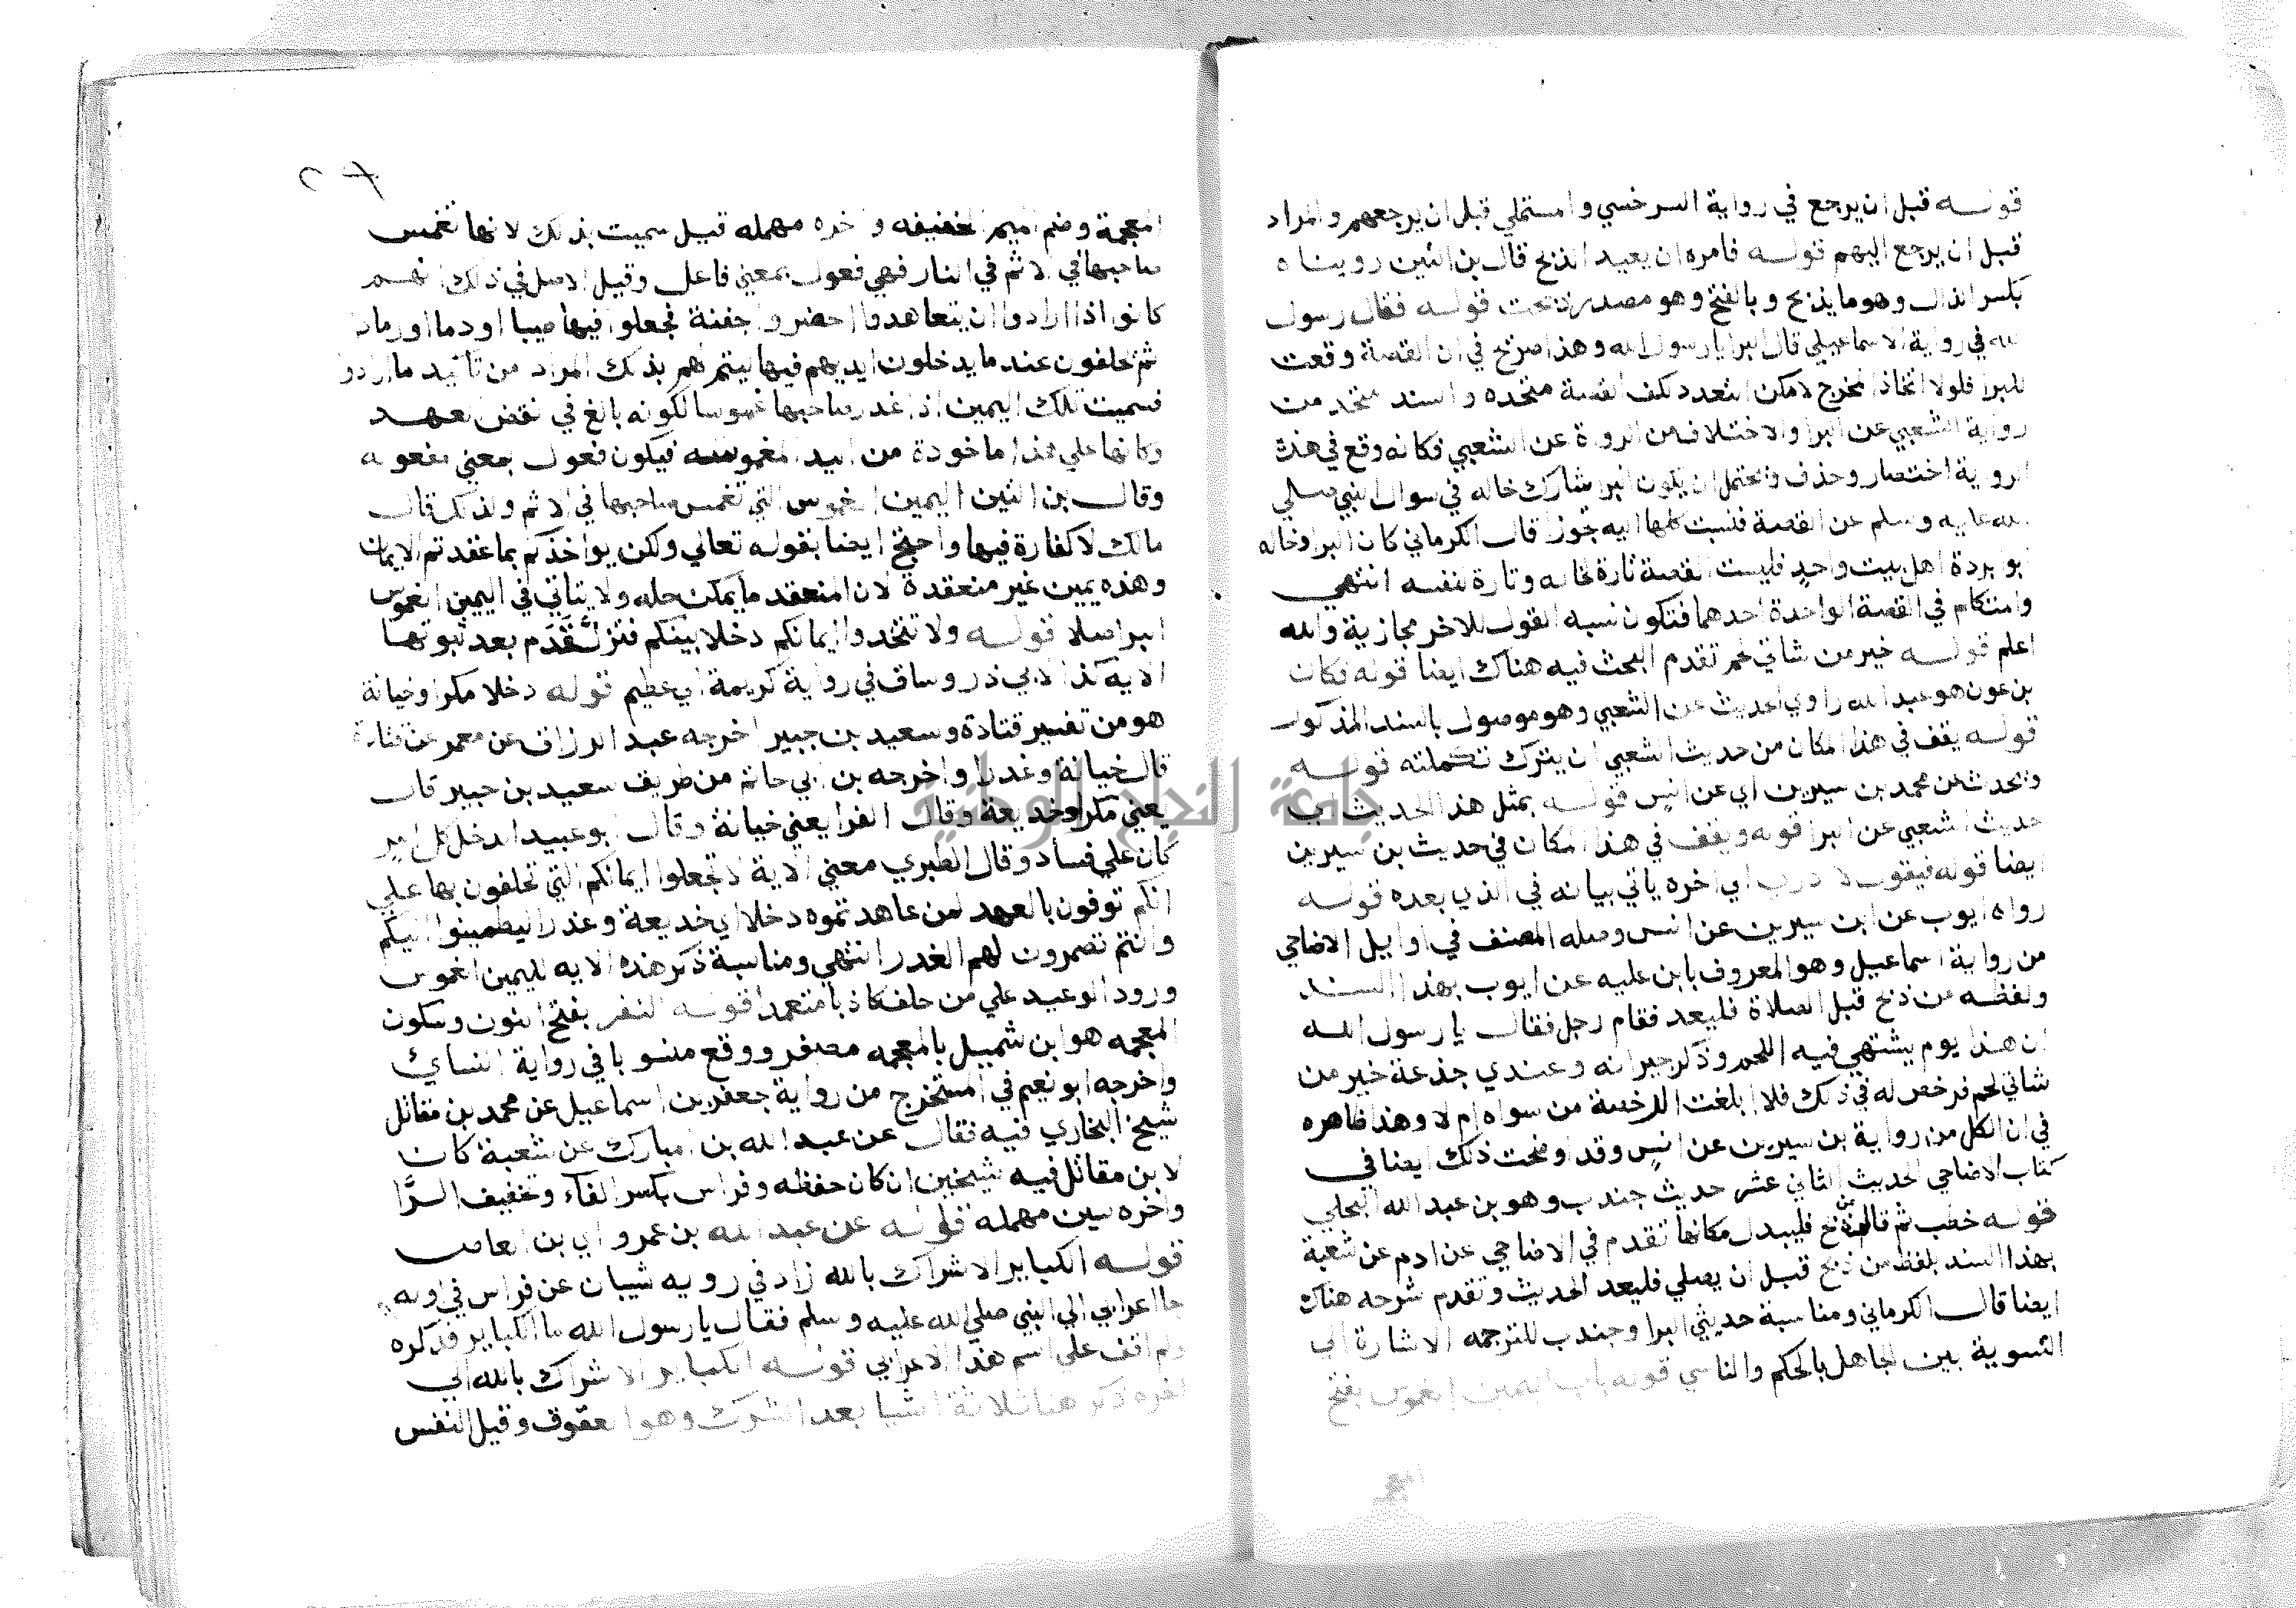 قوله قبل ان يرجع في رواية السرخسي والمستملي قبل ان يرجعهم والمراد
قبل ان يرجع اليهم قوله فامره ان يعيد الذبح قال بن التين رويناه
بكسر الذال وهو ما يذبح وبالفتح وهو مصدر ذبحت قوله فقال رسول
الله في رواية الاسماعيلي قال البرا يارسول الله وهذا صريح في ان القصة وقعت
للبرا فلولا اتحاد المخرج لامكن التعدد لكن القصة متحده والسند متحد من
رواية الشعبي عن البرا والاختلاف من الرواة عن الشعبي فكانه وقع في هذه
الرواية اختصار وحذف ويحتمل ان يكون البرا شارك خاله في سوال النبي صلي
الله عليه وسلم عن القصة فنسبت كلها اليه تجوز قال الكرماني كان البرا وخاله
ابو بردة اهل بيت واحد فنسبت القصة تارة لخاله وتارة لنفسه انتهي
والمتكلم في القصة الواحدة احدهما فتكون نسبه القول للاخر مجازية والله
اعلم قوله خير من شاتي لحم تقدم البحث فيه هناك ايضا قوله فكان
بن عون هو عبد الله راوي الحديث عن الشعبي وهو موصول بالسند المذكور
قوله يقف في هذا المكان من حديث الشعبي اي يترك تكملته قوله
ويحدث عن محمد بن سيرين اي عن انس قوله بمثل هذا الحديث اي
حديث الشعبي عن البرا قوله ويقف في هذا المكان في حديث بن سيرين
ايضا قوله فيقول لا ادري اي اخره ياتي بيانه في الذي بعده قوله
رواه ايوب عن ابن سيرين عن انس وصله المصنف في اوايل الاضاحي
من رواية اسماعيل وهو المعروف بابن عليه عن ايوب بهذا السند
ولفظه من ذبح قبل الصلاة فليعد فقام رجل فقال يارسول الله
ان هذا يوم يشتهي فيه اللحم وذكر جيرانه وعندي جذعة خير من
شاتي لحم فرخص له في ذلك فلا ابلغت الرخصة من سواه ام لا وهذا ظاهره
في ان الكل من رواية بن سيرين عن انس وقد اوضحت ذلك ايضا في
كتاب الاضاحي الحديث الثاني عشر حديث جندب وهو بن عبد الله البجلي
قوله خطب ثم قال من ذبح فليبدل مكانها تقدم في الاضاحي عن ادم عن شعبة
بهذا السند بلفظ من ذبح قبل ان يصلي فليعد الحديث وتقدم شرحه هناك
ايضا قال الكرماني ومناسبة حديثي البرا وجندب للترجمه الاشارة الي
التسوية بين الجاهل بالحكم والناسي قوله باب اليمين الغموس بفتح
المعجمة
المعجمة وضم الميم الخفيفه واخره مهمله قيل سميت بذلك لانها تغمس
صاحبها في الاثم في النار فهي فعول بمعني فاعل وقيل الاصل في ذلك انهم
كانوا اذا ارادوا ان يتعاهدوا احضروا جفنة فجعلوا فيها طيبا او دما او رمادا
ثم يحلفون عند ما يدخلون ايديهم فيها ليتم لهم بذلك المراد من تاكيد ما ارادوا
فسميت تلك اليمين اذا غدر صاحبها غموسا لكونه بالغ في نقض العهد
وكانها علي هذا ماخوذة من اليد المغموسه فيكون فعول بمعني مفعوله
وقال بن التين اليمين الغموس التي تغمس صاحبها في الاثم ولذلك قال
مالك لا كفارة فيها واحتج ايضا بقوله تعالي ولكن يواخذكم بما عقدتم الايمان
وهذه يمين غير منعقدة لان المنعقد ما يمكن حله ولا يتاتي في اليمين الغموس
البر اصلا قوله ولا تتخذوا ايمانكم دخلا بينكم فتزل قدم بعد ثبوتها
الاية كذا لابي ذر وساق في رواية كريمة الي عظيم قوله دخلا مكرا وخيانة
هو من تفسير قتادة وسعيد بن جبير اخرجه عبد الرزاق عن معمر عن قتادة
قال خيانة وغدرا واخرجه بن ابي حاتم من طريف سعيد بن جبير قال
يعني مكرا وخديعة وقال الفرا يعني خيانة وقال ابو عبيد الدخل كل امر
كان علي فساد وقال الطبري معني الاية لا تجعلوا ايمانكم التي تحلفون بها علي
انكم توفون بالعهد لمن عاهدتموه دخلا اي خديعة وغدرا ليطمينوا اليكم
وانتم تضمرون لهم الغدر انتهي ومناسبة ذكر هذه الايه لليمين الغموس
ورود الوعيد علي من حلف كاذبا متعمدا قوله النضر بفتح النون وسكون
المعجمه هو ابن شميل بالمعجمه مصغر ووقع منسوبا في رواية النساي
واخرجه ابو نعيم في المستخرج من رواية جعفر بن اسماعيل عن محمد بن مقاتل
شيخ البخاري فيه فقال عن عبد الله بن المبارك عن شعبة كان
لابن مقاتل فيه شيخين ان كان حفظه وفراس بكسر الفاء وتخفيف الرا
واخره سين مهمله قوله عن عبد الله بن عمرو اي بن العاص
قوله الكباير الاشراك بالله زاد في روايه شيبان عن فراس في اوله
جا اعرابي الي النبي صلي الله عليه وسلم فقال يارسول الله ما الكباير فذكره
ولم اقف علي اسم هذا الاعرابي قوله الكباير الاشراك بالله الي
اخره ذكر هنا ثلاثة اشيا بعد الشرك وهو العقوق وقيل النفس
جامعة النجاح الوطنية